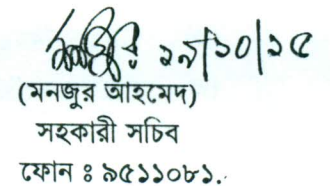 মনজুর ২৯/১০/১৫
(মনজুর আহমেদ)
সহকারী সচিব
ফোন ঃ ৯৫১১০৮১.